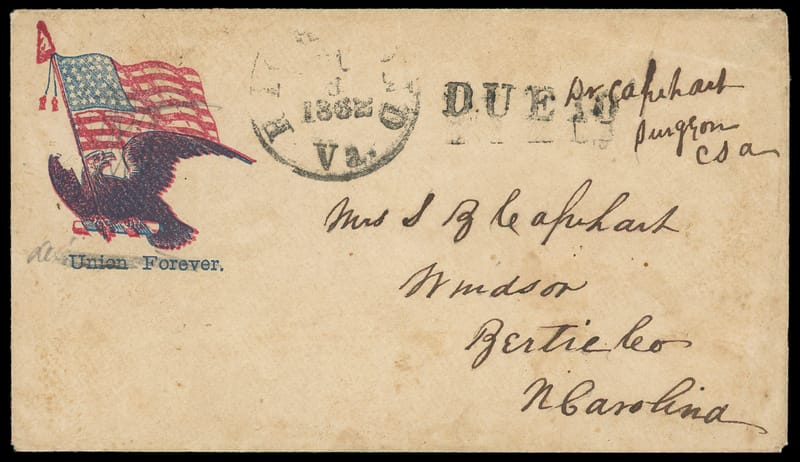 RICHMOND
1862
Va.
DUE 10
Dr Capehart
Surgeon
CSA
Mrs S B Capehart
Windsor
Bertie Co
N Carolina
Union Forever.